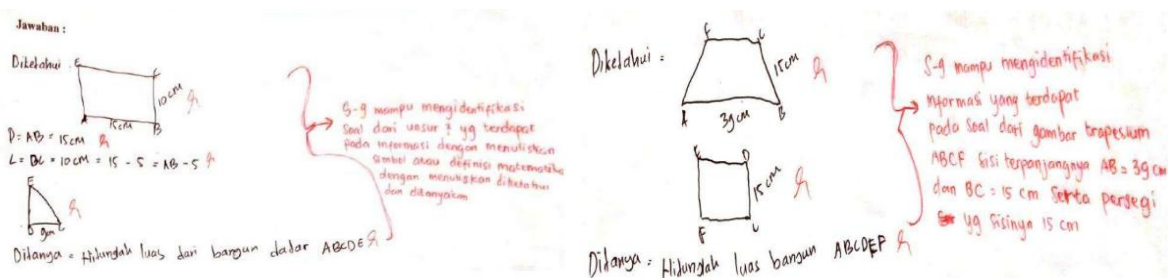 Jawaban :
Diketahui
E
C
10 cm
A
15cm
B
D = AB = 15cm
L = BC = 10 cm = 15 - 5 = AB - 5
E
9cm
Ditanya = Hitunglah luas dari bangun dadar ABCDE
S-9 mampu mengidentifikasi
Soal dari unsur ² yg terdapat
pada informasi dengan menuliskan
simbol atau definisi matematika
dengan menuliskan diketahui
dan ditanyakan
Diketahui =
F
C
15cm
A
39cm
B
D
15cm
F
C
Ditanya = Hitunglah luas bangun ABCDEF
S-9 mampu mengidentifikasi
informasi yang terdapat
pada soal dari gambar trapesium
ABCF sisi terpanjangnya AB = 39 cm
dan BC = 15 cm Serta persegi
yg sisinya 15 cm